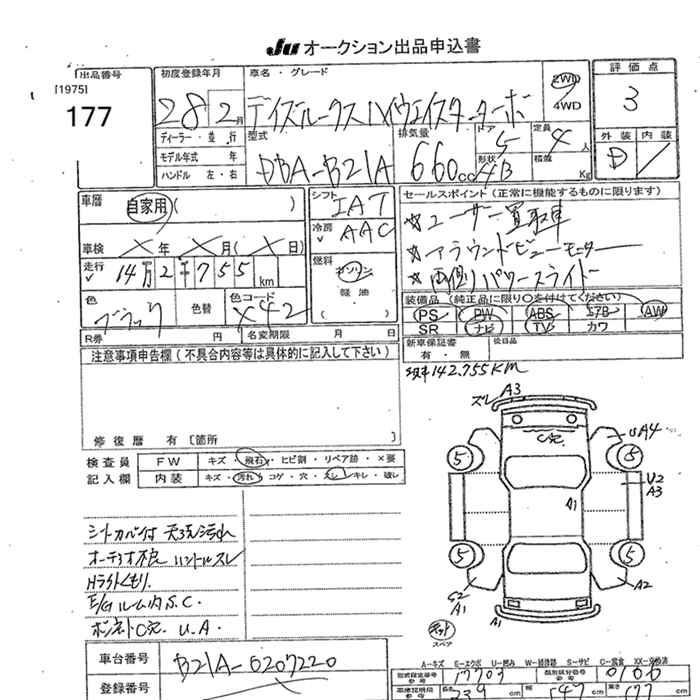 JU オークション出品申込書
出品番号
[1975]
177
初度登録年月
28 2月
車名・グレード
デイズルークス ハイウェイスターターボ
2WD
4WD
評価点
3
ディーラー・並行
モデル年式 年
ハンドル 左・右
型式
DBA-B21A
排気量
660cc
ドア
5
形状
4B
定員
4人
積載
Kg
外装 内装
D
車歴
自家用( )
シフト
IAT
冷房
AAC
車検 × 年 × 月 ( × 日)
走行
14万2千755km
燃料
ガソリン
軽油
( )
色
ブラック
色替
色コード
X42
R券 円
名変期限 月 日
セールスポイント(正常に機能するものに限ります)
☆ユーザー買取車
☆アラウンドビューモニター
☆両側パワースライド
装備品(純正品に限り○を付けてください)
PS PW ABS エアB AW
SR ナビ TV カワ
新車保証書
有・無
後日品
注意事項申告欄(不具合内容等は具体的に記入して下さい)
修復歴 有〔箇所 〕
142,755KM
検査員
記入欄
FW キズ・飛石・ヒビ割・リペア跡・×要
内装 キズ・汚れ・コゲ・穴・スレ・キレ・破レ
ズレ A3
C穴
UA4
5
5
U2
A3
A1
5
5
A2
S2
A1
A1
スペア
シートカバー付 天張汚れ
オーディオ不良 ハンドルスレ
Hライトくもり.
E/Gルーム内S.C.
ボンネトC穴 U.A.
車台番号
B21A-6207220
登録番号
A-キズ E-エクボ U-凹み W-補修跡 S-サビ C-腐食 XX-交換済
型式指定番号
17703
類別区分番号
0106
cm
cm
cm